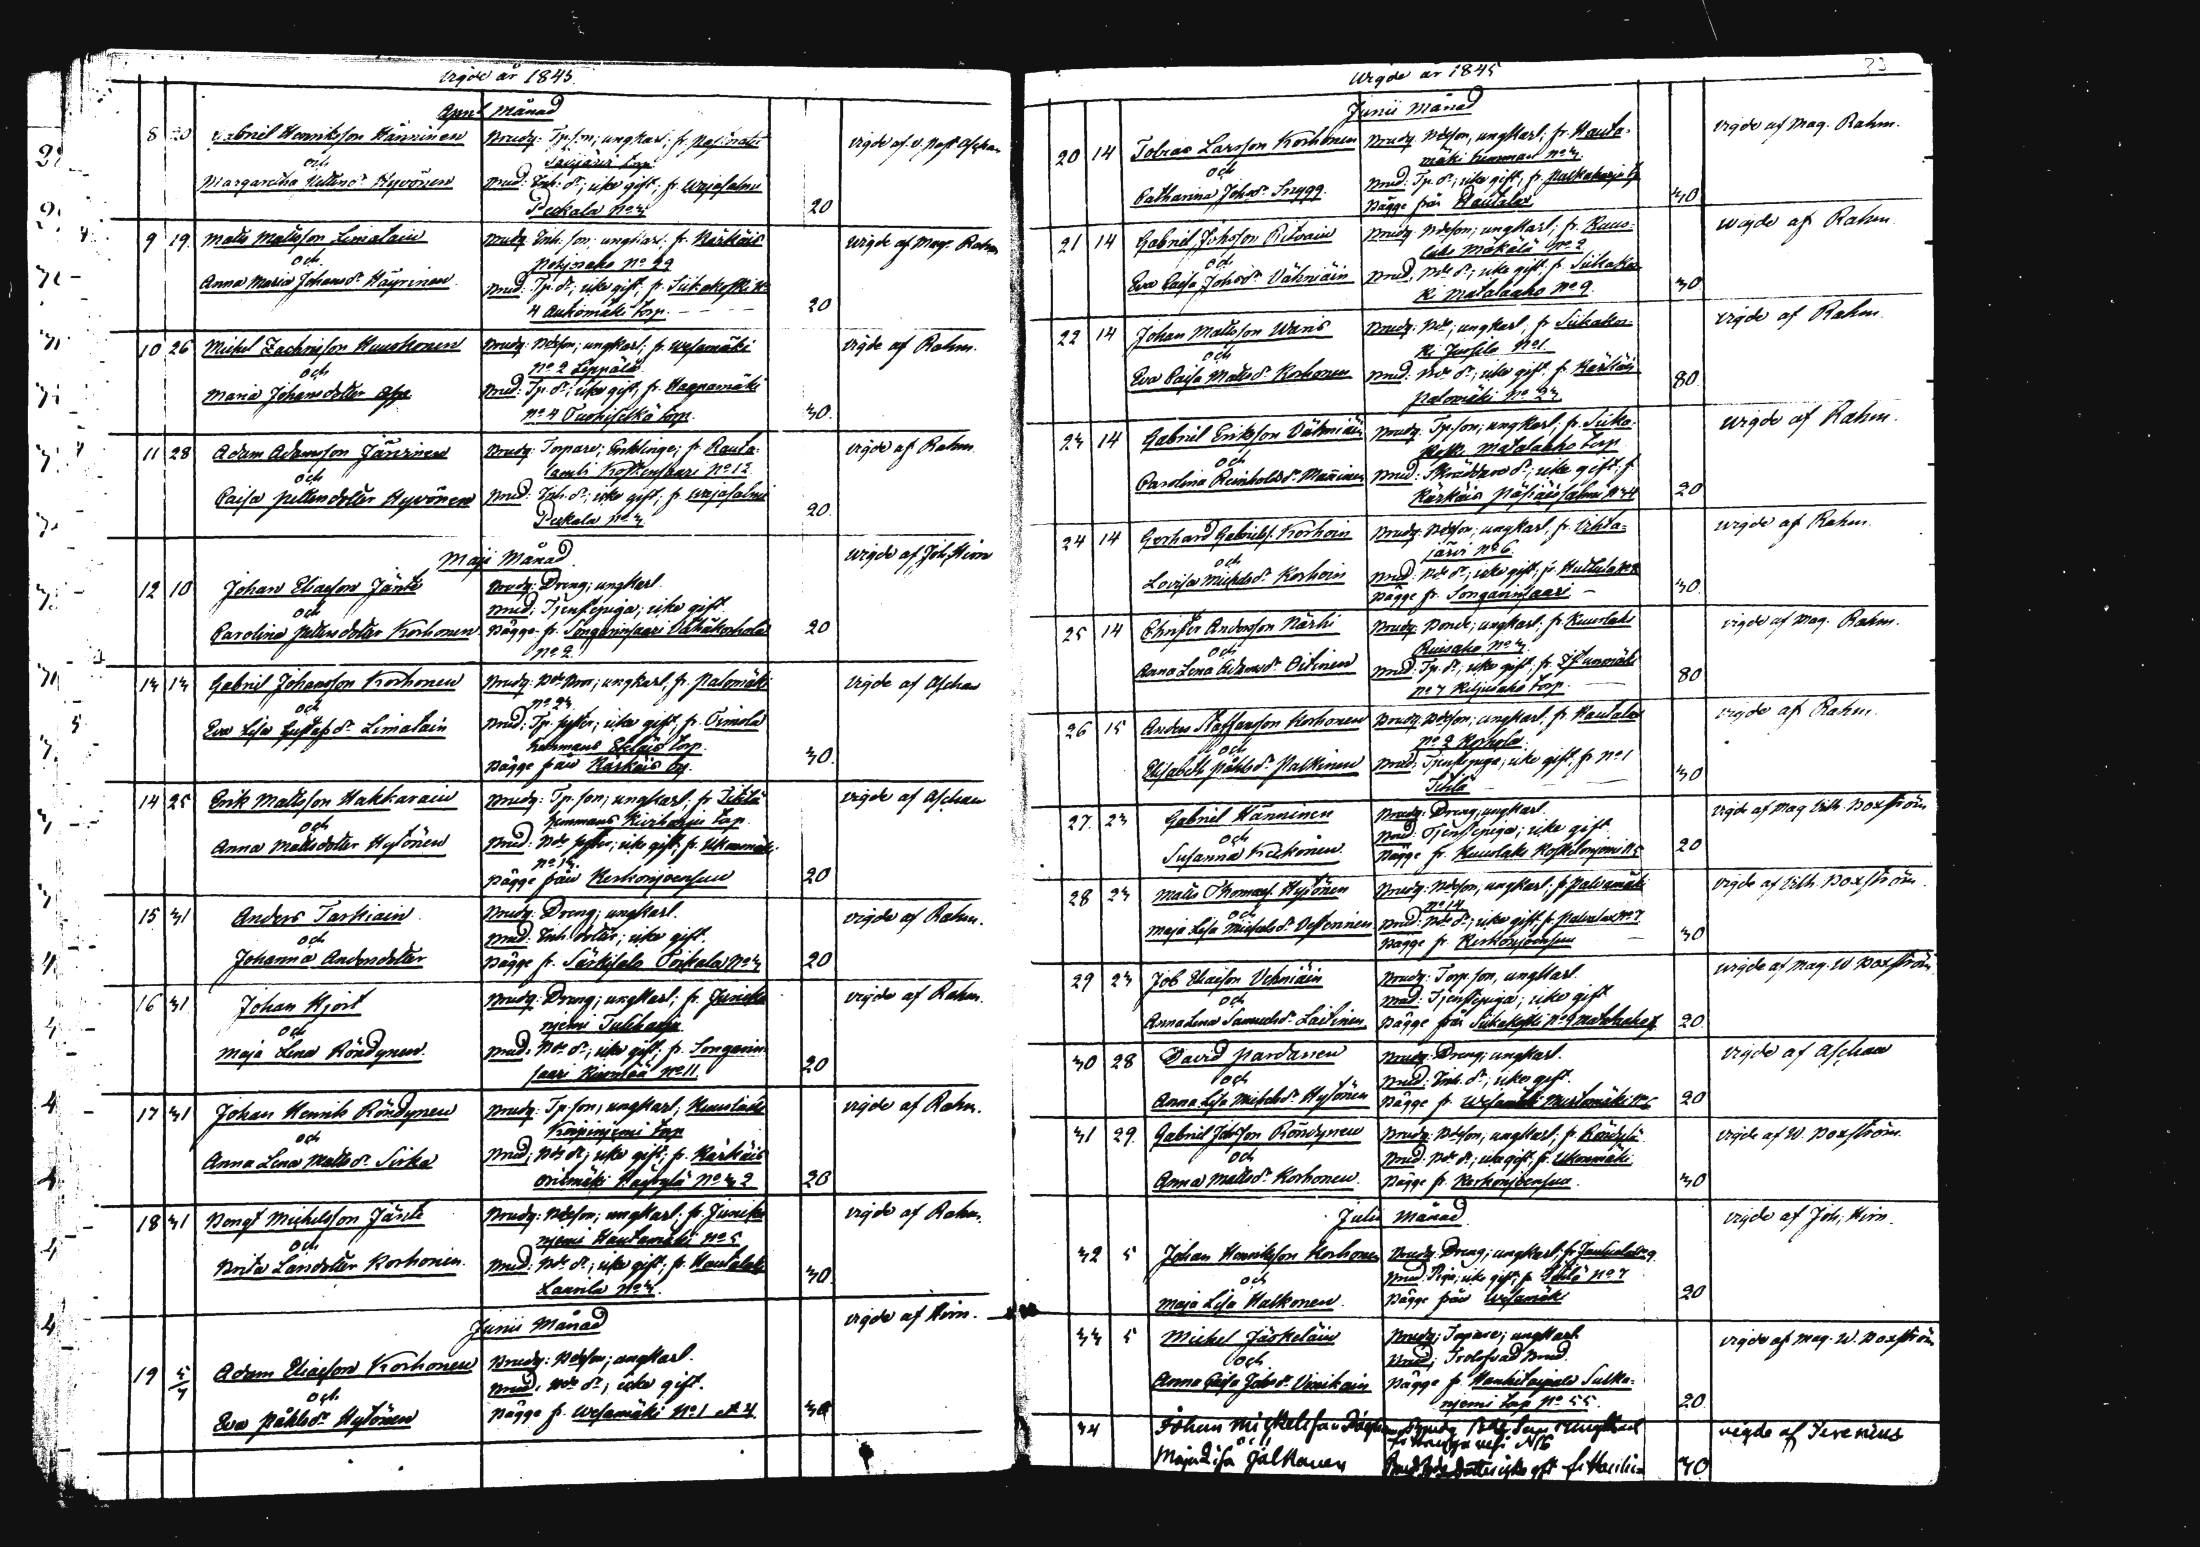 Vigde år 1845.
April Månad
8 20 Gabriel Henriksson Hänninen
och
Margaretha Pettersdr Hyvönen
Brudg: Tp. son; ungkarl; fr.
Torp.
Brud: Inh. dr; icke gift; fr. Wesasalmi
Peckala No 3
20
vigde af v. Past. Aschan
9 19 Matts Mattsson Limatain
och
Anna Maria Johansdr Häyrinen
Brudg. Inh. son; ungkarl; fr. Kärkäis
Pohjosaho No 29
Brud: Tp. dr; icke gift; fr. Siikakoski No
4 Aukomäki torp.
20
vigde af Mag. Rahm
10 26 Michel Zachrisson Huuskonen
och
Maria Johansdotter
Brudg: Bdeson; ungkarl; fr. Wesamäki
No 2 Leppälä
Brud: Tp. dr; icke gift, fr. Haapamäki
No 4 torp.
30.
vigde af Rahm.
11 28 Adam Adamsson Jänninen
och
Caisa Pettersdotter Hyvönen
Brudg: Torpare; Enklinge; fr. Rauta-
lambi Koskensaari No 12.
Brud: Inh. dr; icke gift; fr. Wesasalmi
Peckala No 3
20.
vigde af Rahm
Maji Månad
12 10 Johan Eliasson Jänte
och
Carolina Pettersdotter Korhonen
Brudg: Dreng; ungkarl.
Brud; Tjenstepiga; icke gift.
Bägge fr. Songarinsaari Vähäkorhola
No 2.
20
vigde af Joh. Hirn
13 13 Gabriel Johansson Korhonen
och
Eva Lisa Gustafsdr Limatain
Brudg: Bde Bror; ungkarl, fr. Palomäki
No 23
Brud; Tp. syster; icke gift, fr. Oimola
hemmans torp.
Bägge från Kärkäis by.
30.
vigde af Aschan
14 25 Erik Mattsson Hakkarain
och
Anna Mattsdotter Hytönen
Brudg: Tp. son; ungkarl; fr
hemmans Kiviharju torp.
Brud: Bde syster; icke gift, fr. Ukonmäki
No 13.
Bägge från Kerkonjoensuu
20
vigde af Aschan
15 31 Anders Tarkiain
och
Johanna Andersdotter
Brudg: Dreng; ungkarl.
Brud: Inh. dotter; icke gift.
Bägge fr. Särkisalo No 3
20
vigde af Rahm.
16 31 Johan Hjort
och
Maja Lena Röndynen.
Brudg: Dreng; ungkarl; fr.
njemi
Brud: Bde dr; icke gift; fr. Songarin
saari No 11.
20
vigde af Rahm.
17 31 Johan Henrik Röndynen
och
Anna Lena Mattsdr Sirka
Brudg: Tp. son; ungkarl;
torp
Brud; Bde dr; icke gift; fr. Kärkäis
No 32
20
vigde af Rahm.
18 31 Bengt Michelsson Jänte
och
Brita Larsdotter Korhonen.
Brudg: Bdeson; ungkarl; fr.
njemi Hautamäki No 5
Brud: Bde dr; icke gift; fr. Hautalaks
No 3.
30.
vigde af Rahm.
Junii Månad
19 5/7 Adam Eliasson Korhonen
och
Eva Påhlsdr Hytönen
Brudg: Bdeson; ungkarl.
Brud: Bde dr, icke gift.
Bägge fr. Wesamäki No 1
30
vigde af Hirn.
Vigde år 1845
Junii Månad
20 14 Tobias Larsson Korhonen
och
Catharina Johsdr Snygg.
Brudg: Bdeson, ungkarl; fr. Hauta-
mäki hemman No 3.
Brud: Tp. dr; icke gift, fr.
Bägge från Hautala
30
vigde af Mag. Rahm.
21 14 Gabriel Johsson Ritvain
och
Eva Caisa Johsdr Vähniäin
Brudg. Bdeson; ungkarl; fr. Kuus-
laks Mäkälä No 2
Brud; Bde dr; icke gift. fr. Siikakos-
ki Matalaaho No 9.
30
vigde af Rahm
22 14 Johan Mattsson Waris
och
Eva Caisa Mattsdr Korhonen
Brudg: Bde; ungkarl, fr. Siikakos-
ki Jussila No 1
Brud: Bde dr; icke gift. fr. Kärkäis
Palomäki No 23
80
vigde af Rahm.
23 14 Gabriel Eriksson Vähniäin
och
Carolina Reinholdsdr Manninen
Brudg. Tp. son; ungkarl; fr. Siika-
koski Matalaaho torp
Brud: Skräddare dr; icke gift; fr
Kärkäis No 34
20
vigde af Rahm.
24 14 Gerhard Gabriels. Korhoin
och
Lovisa Michelsdr Korhoin
Brudg: Bdeson, ungkarl, fr. Vihta-
järvi No 6.
Brud: Bde dr; icke gift; fr.
Bägge fr. Songarinsaari
30.
vigde af Rahm.
25 14 Christer Andersson Närhi
och
Anna Lena Adamsdr Oitinen
Brudg: Bonde; ungkarl; fr. Kuuslaks
Ruisaho No 3.
Brud: Tp. dr; icke gift, fr.
No 7 torp.
80
vigde af Mag. Rahm.
26 15 Anders Staffansson Korhonen
och
Elisabeth Påhlsdr Palkinen
Brudg. Bdeson; ungkarl, fr. Hautala
No 2
Brud: Tjenstepiga; icke gift, fr. No 1
30
vigde af Rahm.
27. 23 Gabriel Hänninen
och
Susanna Kickonen
Brudg: Dreng; ungkarl.
Brud: Tjenstepiga; icke gift.
Bägge fr. Kuuslaks
20
vigde af Mag. Vilh. Boxström
28 23 Matts Thomass. Hytönen
och
Maja Lisa Michelsdr Vestennien
Brudg: Bdeson; ungkarl; fr. Palvamäki
No 14
Brud: Bde dr; icke gift, fr. No 7
Bägge fr. Kerkonjoensuu
30
vigde af Vilh. Boxström.
29 23 Job Eliasson Vehniäin
och
Anna Lena Samuelsdr Laitinen
Brudg: Torp. son, ungkarl.
Brud: Tjenstepiga; icke gift
Bägge från Siikakoski No 9 Matalaaho
20.
vigde af Mag. W Boxström
30 28 David Pardanen
och
Anna Lisa Michelsdr Hytönen
Brudg: Dreng; ungkarl.
Brud; Inh. dr; icke gift.
Bägge fr. Wesamäki Mustamäki No 5
20
vigde af Aschan
31 29. Gabriel Johsson Röndynen
och
Anna Mattsdr Korhonen.
Brudg: Bdeson, ungkarl; fr. Röndylä
Brud: Bde dr; icke gift fr. Ukonmäki
Bägge fr. Kerkonjoensuu.
30
vigde af W. Boxström.
Julii Månad.
32 5 Johan Henriksson Korhonen
och
Maja Lisa Halkonen.
Brudg: Dreng; ungkarl; fr.
Brud: Piga; icke gift, fr. No 7
Bägge från Wesamäki
20
vigde af Joh, Hirn
33 5 Michel Jäskeläin
och
Anna Caisa Johsdr Vinnikain
Brudg: Torpare; ungkarl.
Brud; Trolofvad Brud.
Bägge fr. Hankitaipale Sulka-
njemi torp No 55.
20.
vigde af Mag. W. Boxström
34 Johan Mickelsson
och
Maja Lisa Jälkanen
Brudg Bde son ungkarl
No 6
Brud Bde dotter icke gift
30
vigde af Teverenius